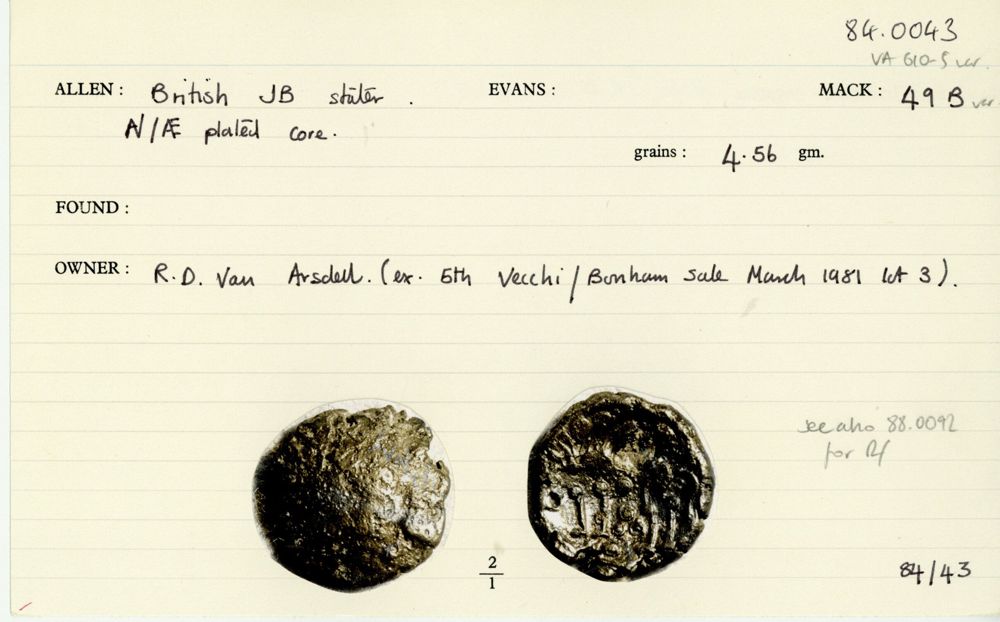 84.0043
VA 610-5 var.
ALLEN : British JB stater . EVANS : MACK : 49 B var.
N/Æ plated core.
grains : 4.56 gm.
FOUND :
OWNER : R.D. Van Arsdell. (ex. 5th Vecchi/Bonham sale March 1981 lot 3).
see also 88.0092
for
2
1
84/43